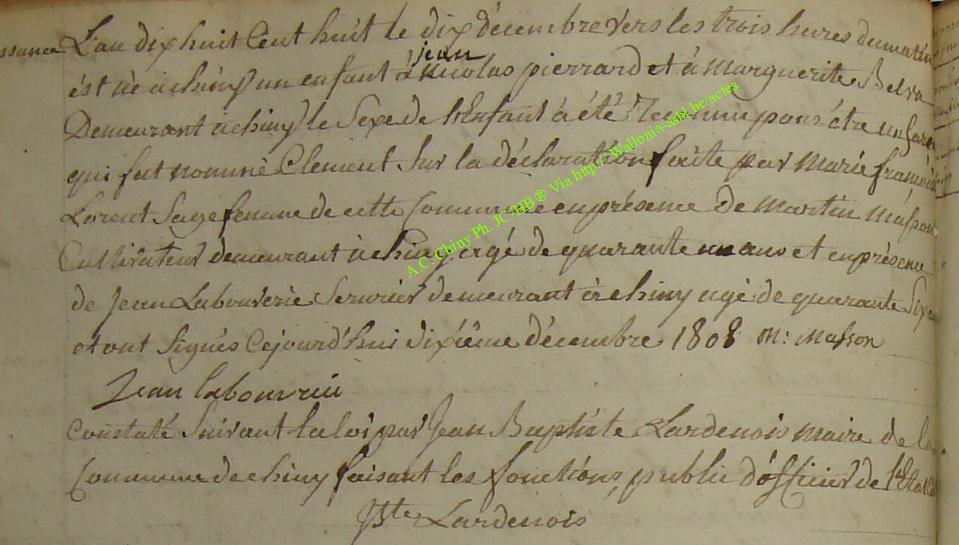 ssance L'an dix huit Cent huit le dix décembre vers les trois heures du matin
jean
est né a chiny un enfant à Nicolas pierrard et à Marguerite
Demeurant à chiny le Sexe de l'Enfant à été reconnu pour être un Garc
qui fut nommé Clement Sur la déclaration faite par Marie françoi
Lorent Sage femme de cette Commune en présence de Martin Masson
Cultivateur demeurant à chiny agé de quarante un ans et en présence
de Jean Labouverie Serurier demeurant à chiny agé de quarante Six
et ont Signés Cejourd'hui dixième décembre 1808 M: Masson
Jean labouverie
Constaté Suivant la loi par Jean Baptiste Lardenois maire de la
Commune de chiny faisant les fonctions public d'officier de l'Etat
Jbte Lardenois
A.C. Chiny Ph. JC-HB ® Via http://Wallonia-asbl.be/actes